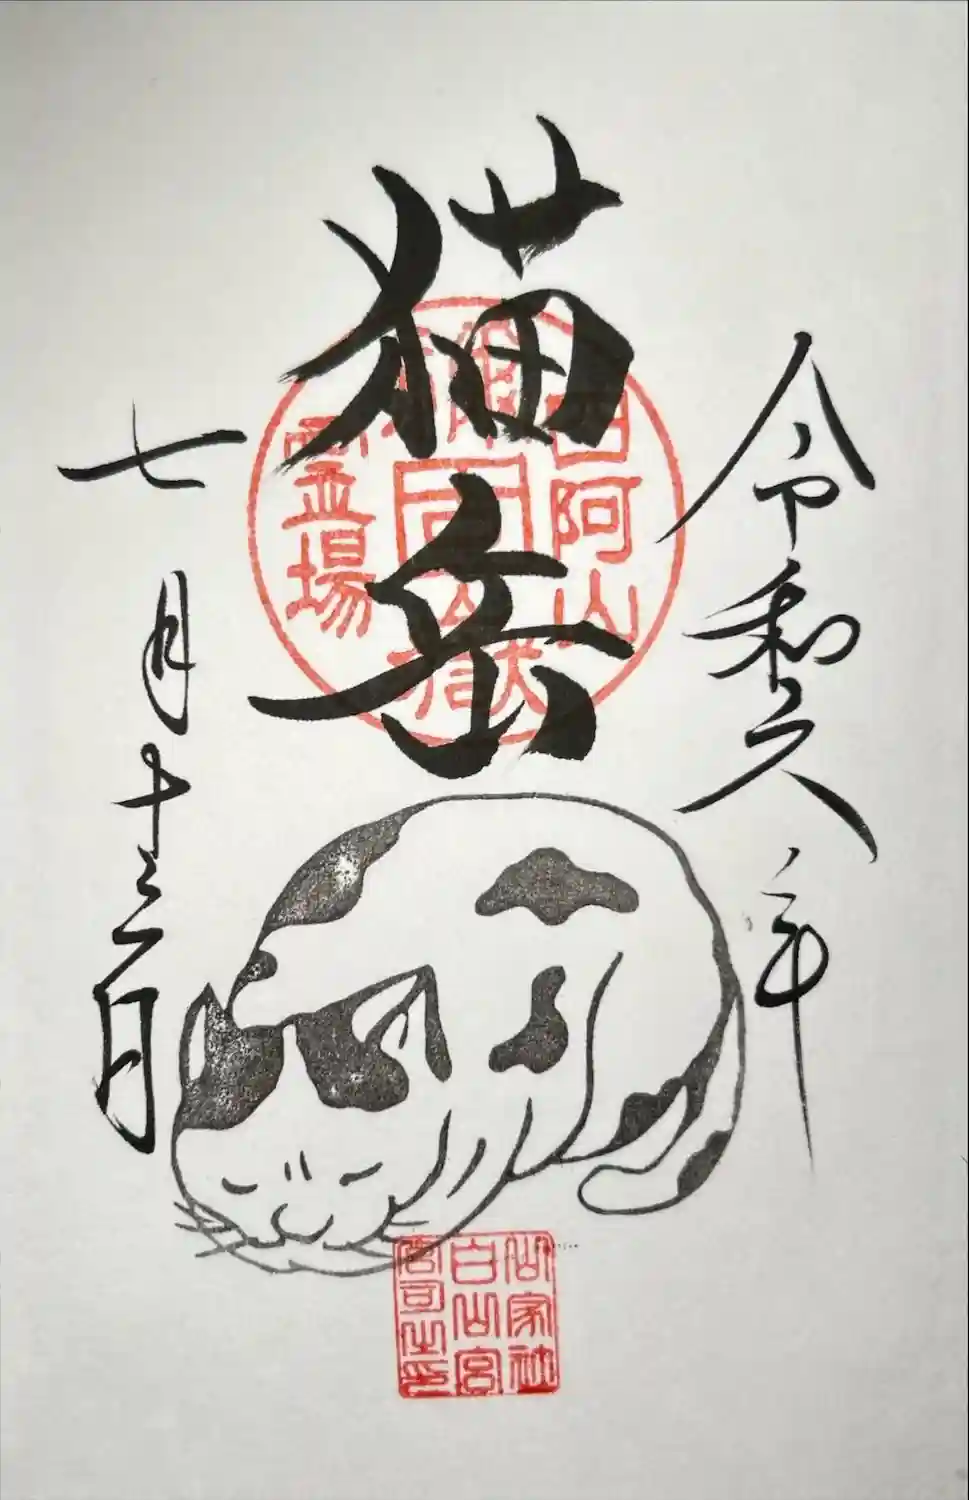 令和六年
猫岳
七月十三日
四阿山
霊場
山家社
白山宮
宮司之印